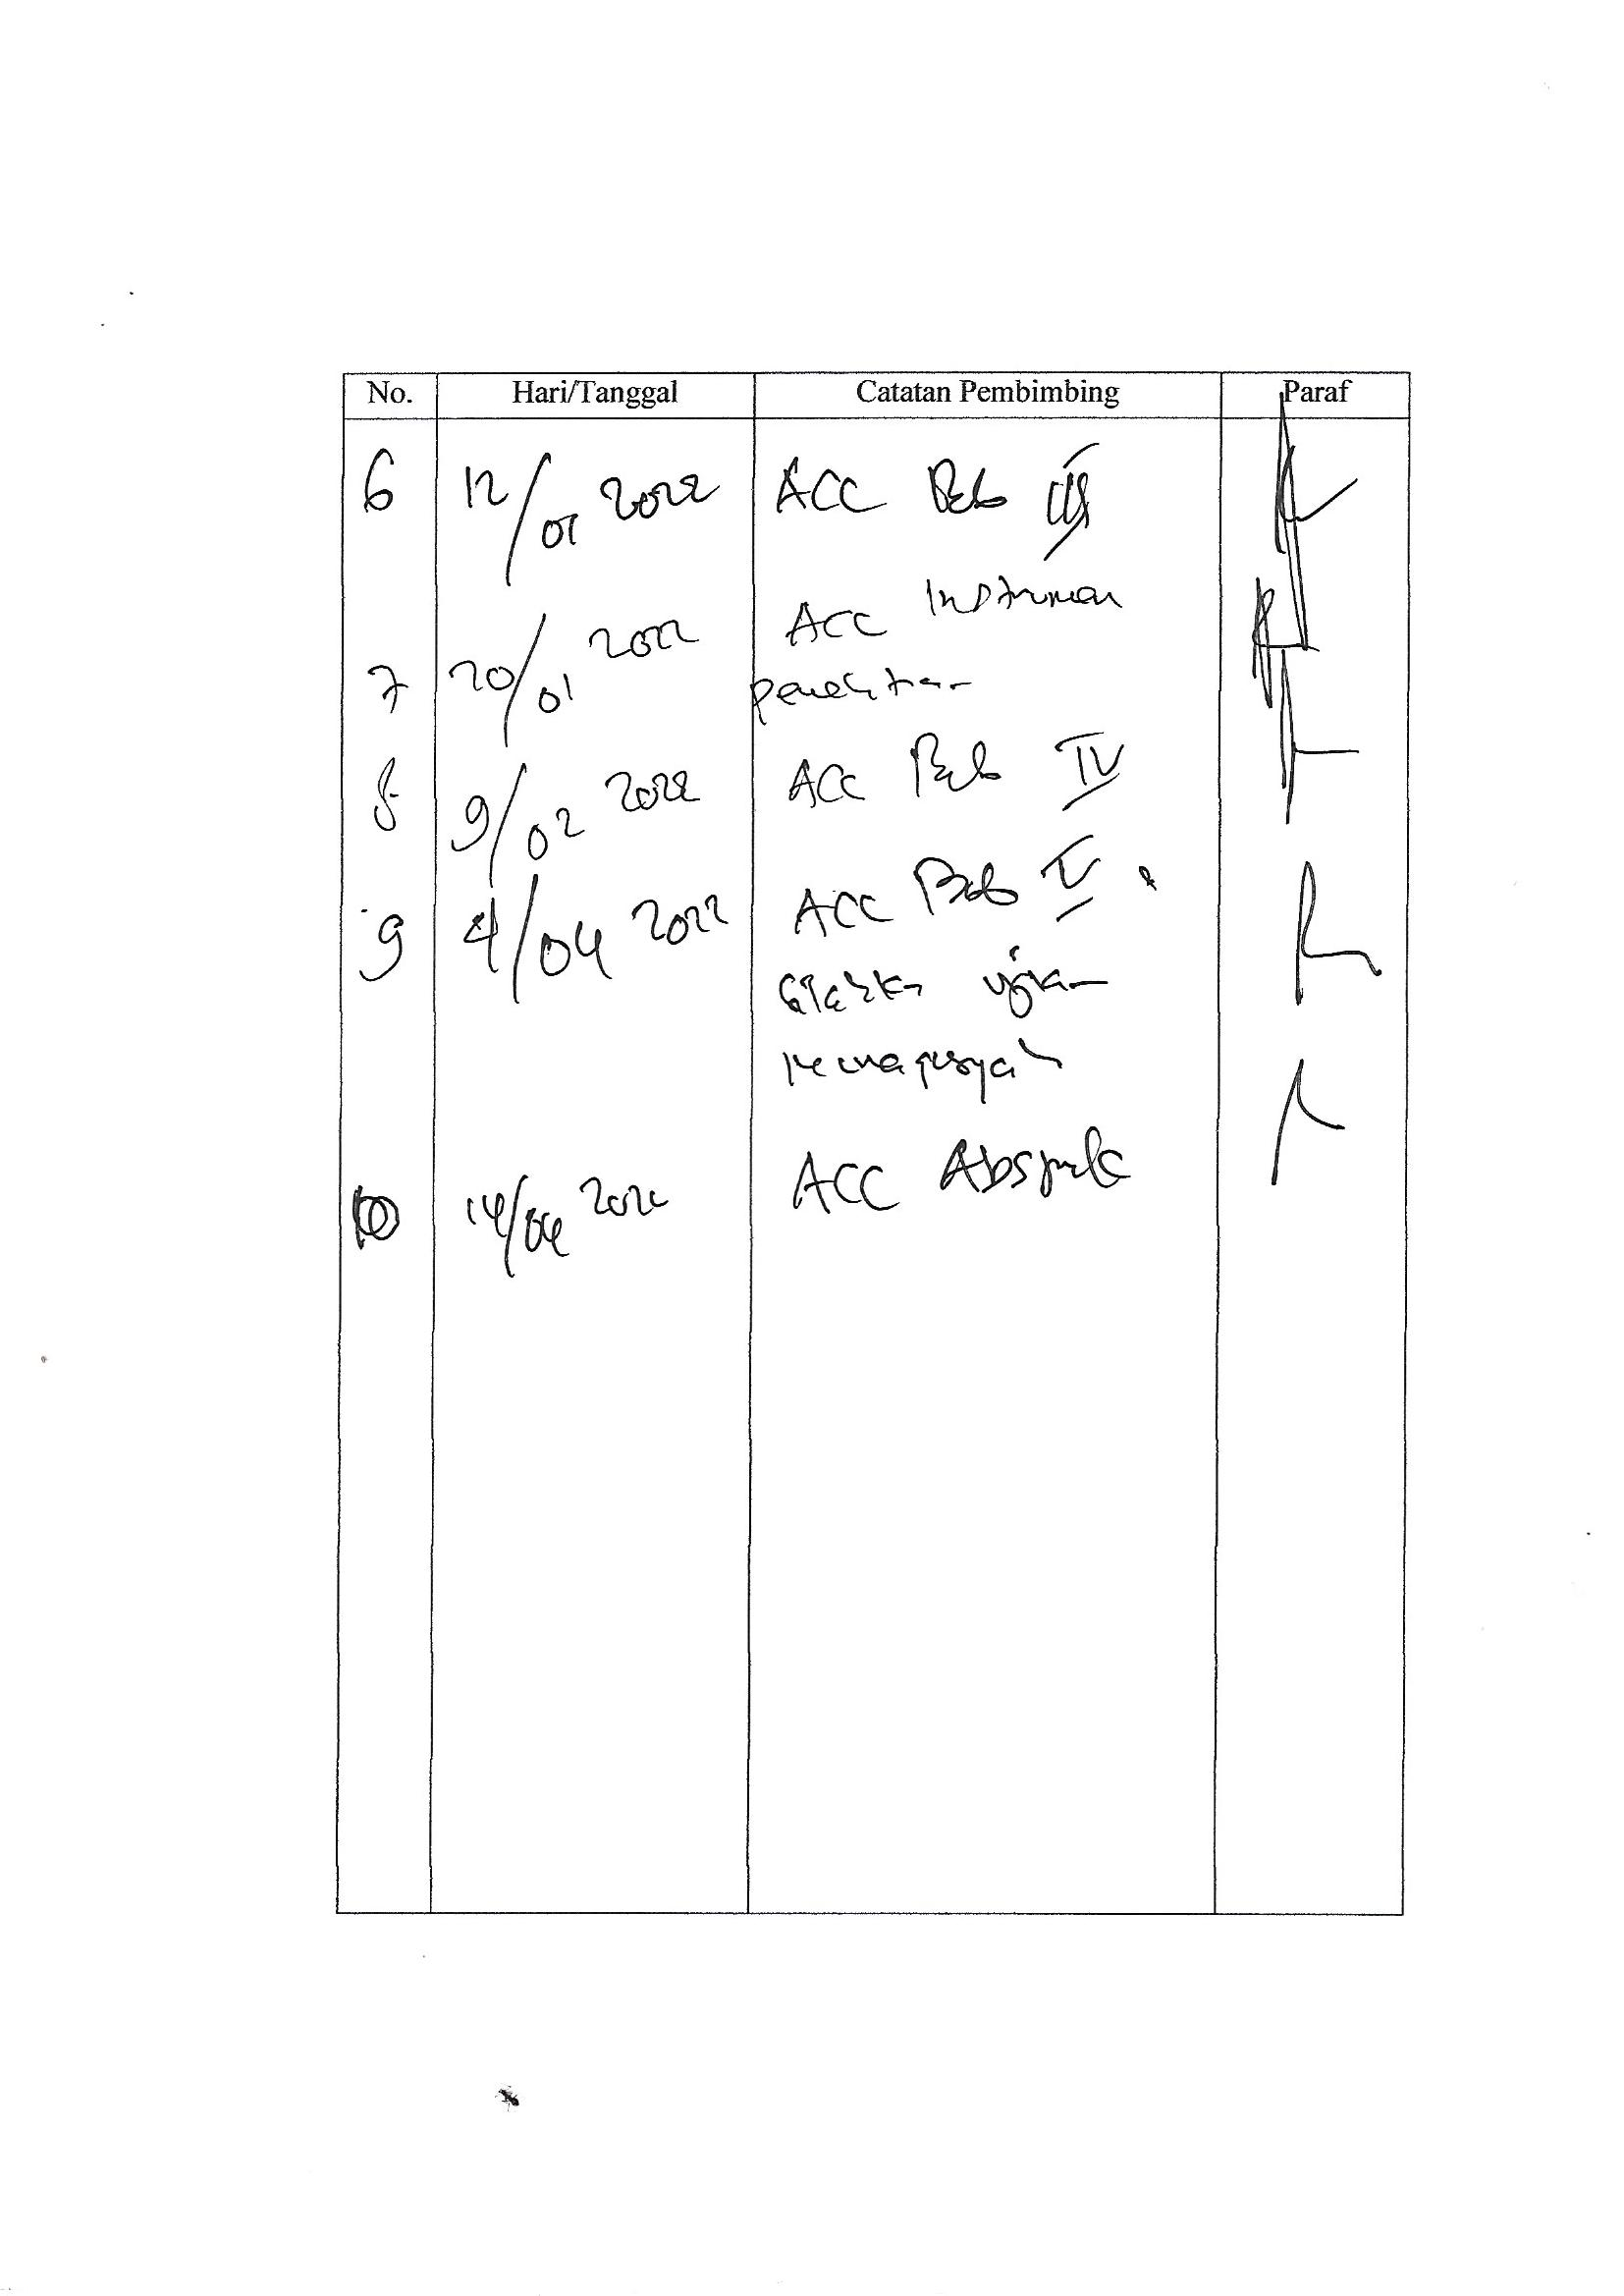 No. Hari/Tanggal Catatan Pembimbing Paraf
6 12/01 2022 ACC Bab III
7 20/01 2022 ACC Instrumen
penelitian
8 9/02 2022 ACC Bab IV
9 4/04 2022 ACC Bab V
Silahkan ujian
munaqasyah
10 14/04 2022 ACC Abstrak